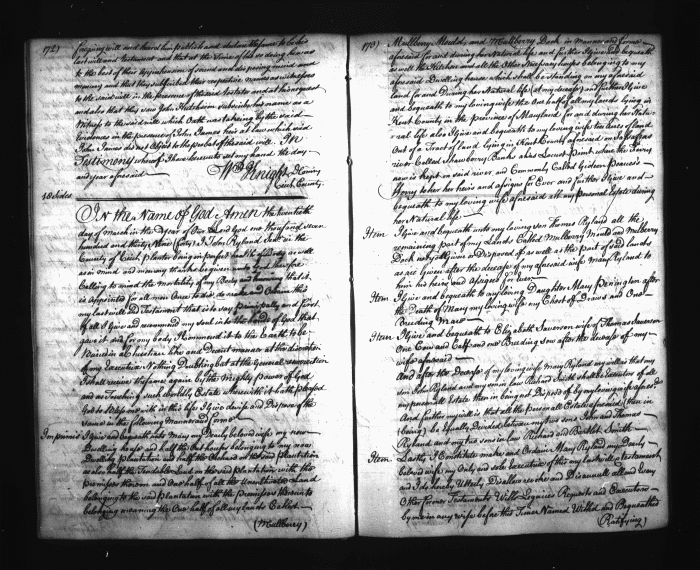 172)
foregoing will and heard him publish and declare the same to be his
last will and Testament and that at the time of his so doing he was
to the best of their apprehension of sound and disposing mind and
memory and that they subscribed their respective names as witnesses
to the said will in the presence of the said Testator and at his request
and also that they saw John Hutchison subscribe his name as a
Witness to the said will which Oath was taken by the said
Evidences in the presence of John James heir at law which said
John James did not Object to the probat of the said will. In
Testimony whereof I have hereunto set my hand the day
and year aforesaid
Wm Knight
Cecil County
18 sides
In the Name of God Amen the twentieth
day of March in the Year of Our Lord God one thousand seven
hundred and thirty Nine I John Ryland Senr in the
County of Cecil Planter being in perfect health of Body as well
as in mind and memory thanks be given unto God therefore
Calling to mind the mortality of my Body and knowing that it
is appointed for all men Once to die do make and Ordain this
my last will and Testament that is to say principally and first
of all I Give and recommend my soul into the hands of God that
gave it and for my body I recommend it to the Earth to be
Buried in a Christian like and Decent manner at the discretion
of my Executrix Nothing Doubting but at the General resurrection
I shall receive the same again by the Mighty power of God
and as Touching such worldly Estate wherewith it hath pleased
God to bless me with in this life I give devise and Dispose of the
same in the following Manner and form
Imprimis I give and bequeath unto Mary my Dearly beloved wife my new
Dwelling house and half the Outhouses belonging to my now
Dwelling plantation and half the Orchard on the said plantation
as also half the Tendable Land on the said plantation with the
premises thereon and One half of all the Uncultivated Land
belonging to the said plantation with the premises thereunto
belonging meaning the One half of all my lands Called
(Mullberry)
173)
Mullberry Mould and Mullberry Dock in manner and form
aforesaid for and during her Natural life and further I give and bequeath
as well the Kitchen and all the Other Necessary houses belonging to my
aforesaid Dwelling house which shall be standing on my aforesaid
land for and During her Natural life (at my decease) and further I Give
and bequeath to my loving wife the One half of all my lands lying in
Kent County in the province of Maryland for and during her Natu=
=ral life also I give and bequeath to my loving wife ten acres of land
Out of a Tract of land lying in Kent County aforesaid on Sassafras
river Called Strawberry Banks alias Locust point where the ferry
now is kept on said river and Commonly Called Gideon Pearce's
Ferry to her her heirs and assigns for Ever and further I give and
bequeath to my loving wife aforesaid all my personal Estate during
her Natural life
Item I give and bequeath unto my loving son Thomas Ryland all the
remaining part of my Lands Called Mullberry Mould and Mullberry
Dock not already given or Disposed of as well as the part of said lands
as are Given after the decease of my aforesaid wife Mary Ryland to
him his heirs and assigns for Ever
Item I give and bequeath to my loving Daughter Mary Penington after
the Death of Mary my loving wife my Chest of Draws and One
Breeding Mare
Item I give and bequeath to Elizabeth Severson wife of Thomas Severson
One Cow and Calf and one Breeding Sow after the decease of my
wife aforesaid
And after the Decease of my loving wife Mary Ryland my will is that my
son John Ryland and my son in law Richard Smith shall be Executors of all
my personal Estate then in being not Disposed of by my loving wife aforesd
and further my will is that all the personal Estate aforesaid (then in
being) be Equally Divided between my two sons John and Thomas
Ryland and my two sons in law Richard and Smith
Item Lastly I Constitute make and Ordain Mary Ryland my Dearly
beloved wife my Only and sole Executrix of this my last will and testament
and I do hereby Utterly Disallow revoke and Disannull all and Every
Other former Testaments Wills Legacies Requests and Executors
by me in any wise before this Time Named Willed and Bequeathed
(Ratifying)